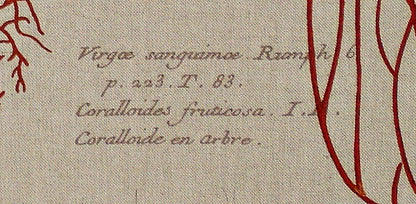 Virgœ sanguinœ. Rumph 6
p. 223. T. 83.
Coralloides fruticosa. I.
Coralloide en arbre.